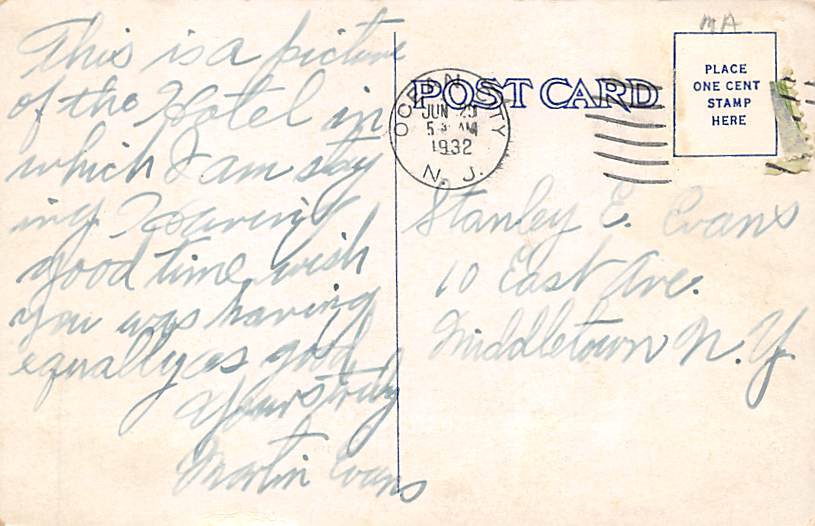 This is a picture
of the Hotel in
which I am stay
ing Having
good time wish
you was having
equally as good
Yours truly
Martin Evans
MA
POST CARD
PLACE
ONE CENT
STAMP
HERE
OCEAN CITY
JUN 29
5 AM
1932
N. J.
Stanley E. Evans
10 East Ave.
Middletown N.Y.